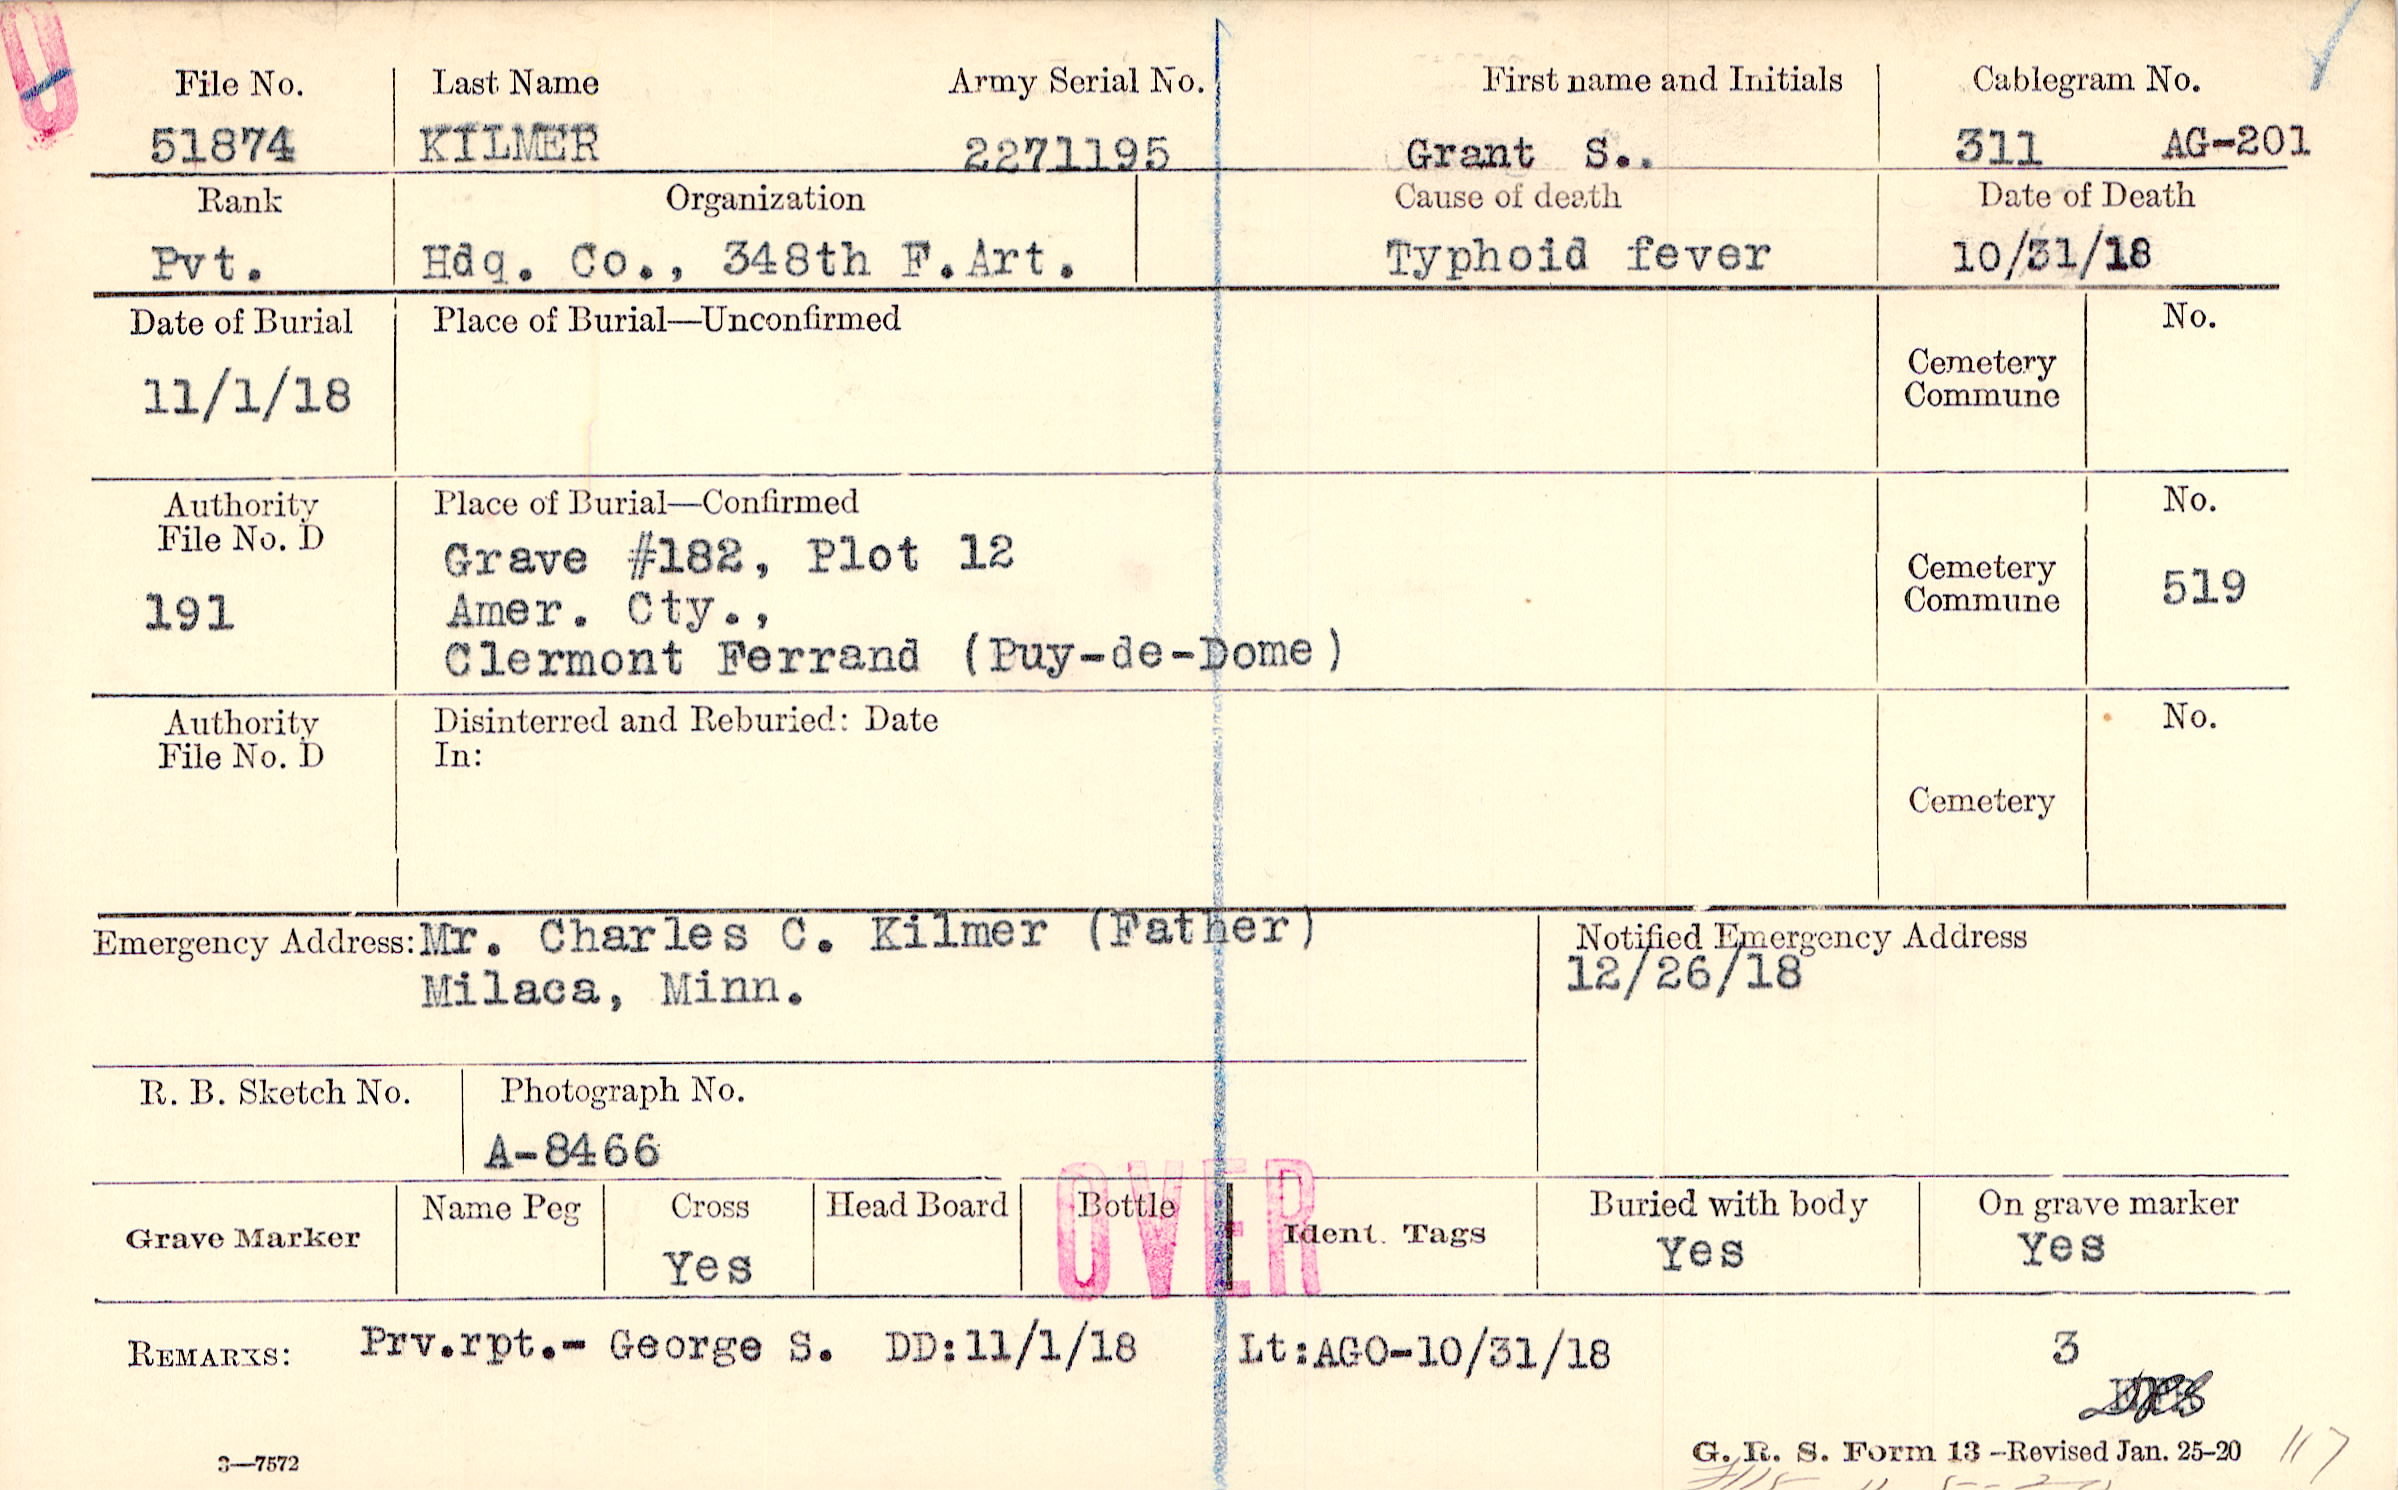 File No. Last Name Army Serial No. First name and Initials Cablegram No.
51874 KILMER 2271195 Grant S.. 311 AG-201
Rank Organization Cause of death Date of Death
Pvt. Hdq. Co., 348th F.Art. Typhoid fever 10/31/18
Date of Burial Place of Burial—Unconfirmed No.
11/1/18 Cemetery
Commune
Authority Place of Burial—Confirmed No.
File No. D
Grave #182, Plot 12
191 Amer. Cty., Cemetery
Commune 519
Clermont Ferrand (Puy-de-Dome)
Authority Disinterred and Reburied: Date No.
File No. D In:
Cemetery
Emergency Address: Mr. Charles C. Kilmer (Father) Notified Emergency Address
Milaca, Minn. 12/26/18
R. B. Sketch No. Photograph No.
A-8466
OVER
Grave Marker Name Peg Cross Head Board Bottle Ident. Tags Buried with body On grave marker
Yes Yes Yes
REMARKS: Prv.rpt.- George S. DD:11/1/18 Lt:AGO-10/31/18 3
3—7572 G. R. S. Form 13 –Revised Jan. 25-20 117